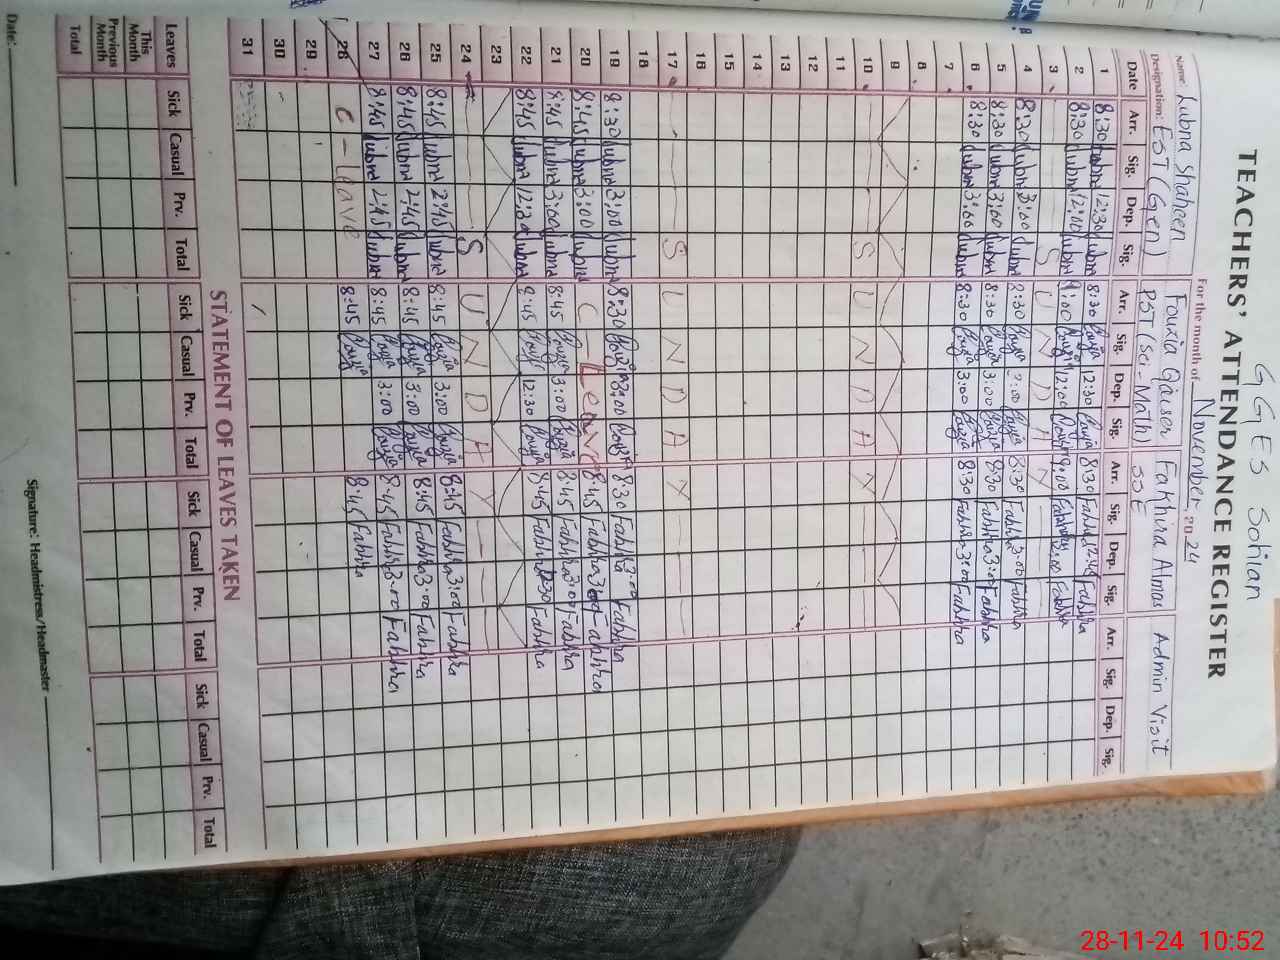 GGES Sohian
TEACHERS' ATTENDANCE REGISTER
For the month of November, 2024
Name: Lubna Shaheen Fouzia Qaiser Fakhira Almas Admin Visit
Designation: EST (Gen) PST (Sci-Math) SSE
Date Arr. Sig. Dep. Sig. Arr. Sig. Dep. Sig. Arr. Sig. Dep. Sig. Arr. Sig. Dep. Sig.
1 8:30 Lubna 12:30 Lubna 8:30 Fouzia 12:30 Fouzia 8:30 Fakhira 12:45 Fakhira
2 8:30 Lubna 12:00 Lubna 9:00 Fouzia 12:00 Fouzia 9:00 Fakhira 12:00 Fakhira
3 S U N D A Y
4 8:30 Lubna 3:00 Lubna 8:30 Fouzia 3:00 Fouzia 8:30 Fakhira 3:00 Fakhira
5 8:30 Lubna 3:00 Lubna 8:30 Fouzia 3:00 Fouzia 8:30 Fakhira 3:00 Fakhira
6 8:30 Lubna 3:00 Lubna 8:30 Fouzia 3:00 Fouzia 8:30 Fakhira 3:00 Fakhira
7
8
9
10 S U N D A Y
11
12
13
14
15
16
17 S U N D A Y
18
19 8:30 Lubna 3:00 Lubna 8:30 Fouzia 3:00 Fouzia 8:30 Fakhira 3:00 Fakhira
20 8:45 Lubna 3:00 Lubna C - Leave 8:45 Fakhira 3:00 Fakhira
21 8:45 Lubna 3:00 Lubna 8:45 Fouzia 3:00 Fouzia 8:45 Fakhira 3:00 Fakhira
22 8:45 Lubna 12:30 Lubna 8:45 Fouzia 12:30 Fouzia 8:45 Fakhira 12:30 Fakhira
23
24 S U N D A Y
25 8:45 Lubna 2:45 Lubna 8:45 Fouzia 3:00 Fouzia 8:45 Fakhira 3:00 Fakhira
26 8:45 Lubna 2:45 Lubna 8:45 Fouzia 3:00 Fouzia 8:45 Fakhira 3:00 Fakhira
27 8:45 Lubna 2:45 Lubna 8:45 Fouzia 3:00 Fouzia 8:45 Fakhira 3:00 Fakhira
28 C - Leave 8:45 Fouzia 8:45 Fakhira
29
30
31
STATEMENT OF LEAVES TAKEN
Leaves Sick Casual Prv. Total Sick Casual Prv. Total Sick Casual Prv. Total Sick Casual Prv. Total
This Month
Previous Month
Total
Date: Signature: Headmistress/Headmaster
28-11-24 10:52